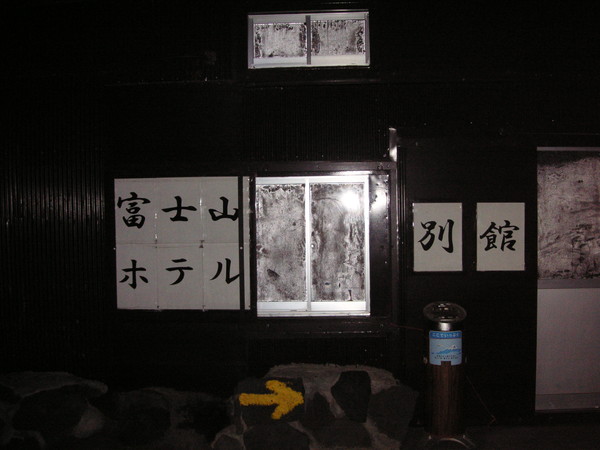 富士山
ホテル
別館